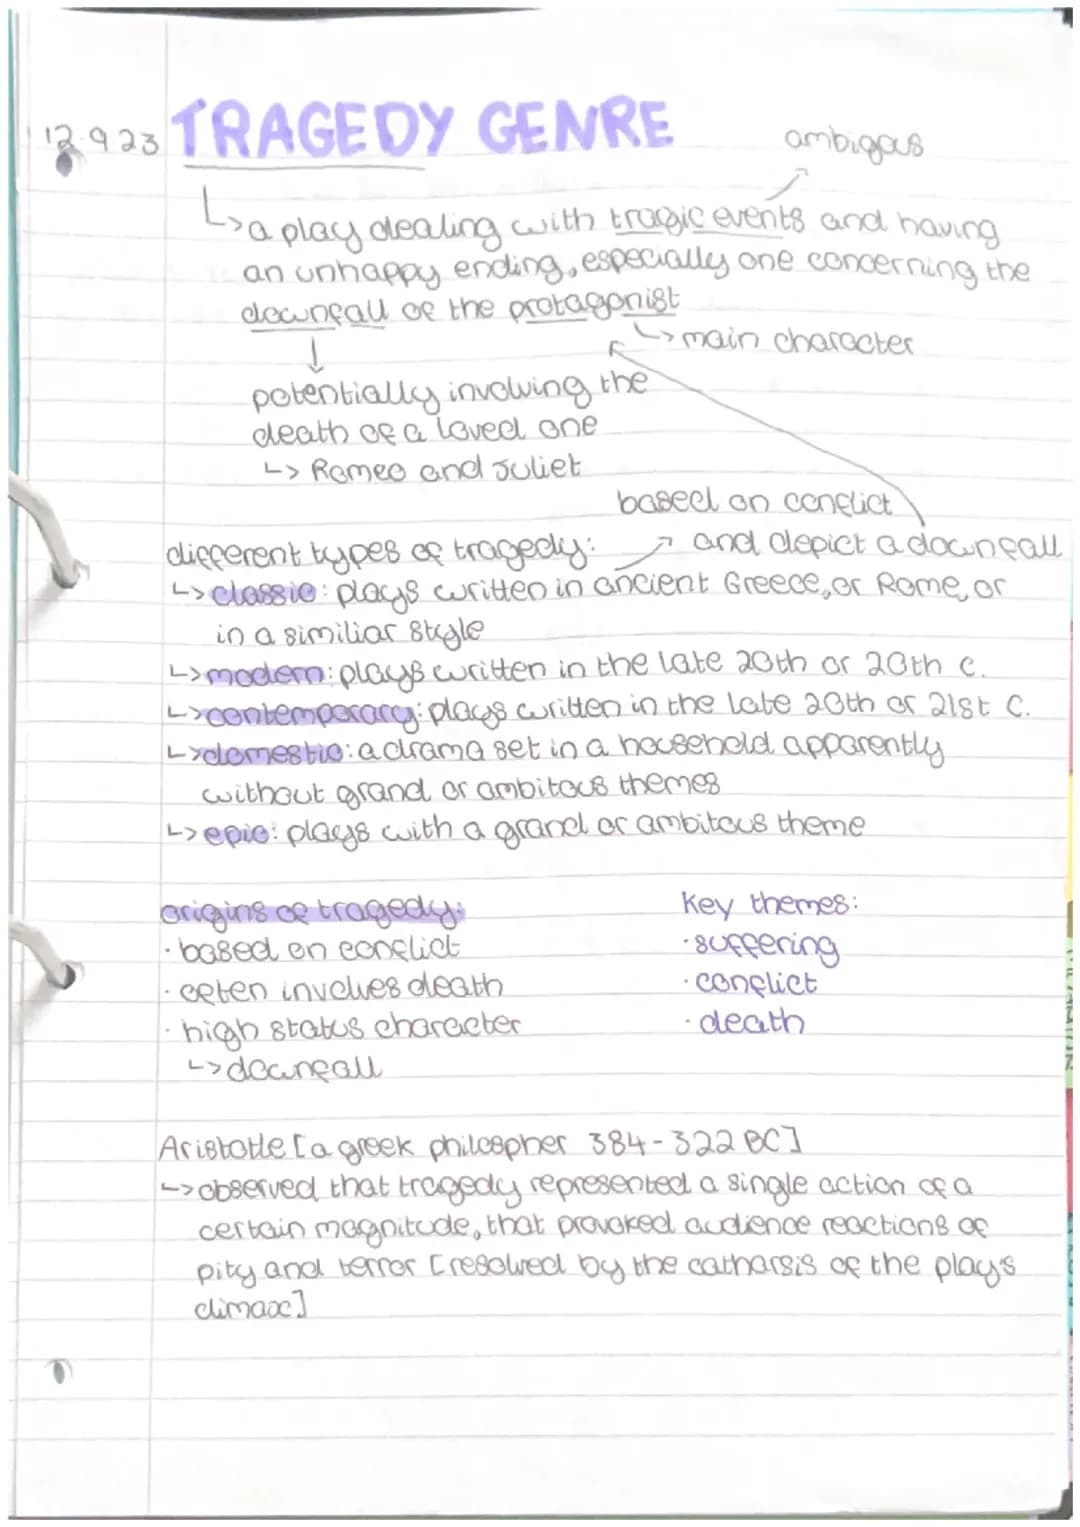 12.9.23 TRAGEDY GENRE
ambigous
↳ a play dealing with tragic events and having
an unhappy ending, especially one concerning the
downfall of the protagonist
↳ main character
potentially involving the
death of a loved one
↳ Romeo and Juliet
based on conflict
and depict a downfall
different types of tragedy:
↳ classic: plays written in ancient Greece, or Rome, or
in a similiar style
↳ modern: plays written in the late 20th or 20th c.
↳ contemporary: plays written in the late 20th or 21st c.
↳ domestic: a drama set in a household apparently
without grand or ambitous themes
↳ epic: plays with a grand or ambitous theme
origins of tragedy:
· based on conflict
· often involves death
· high status character
↳ downfall
key themes:
· suffering
· conflict
· death
Aristotle [a greek philospher 384-322 BC]
↳ observed that tragedy represented a single action of a
certain magnitude, that provoked audience reactions of
pity and terror [resolved by the catharsis of the plays
climax]